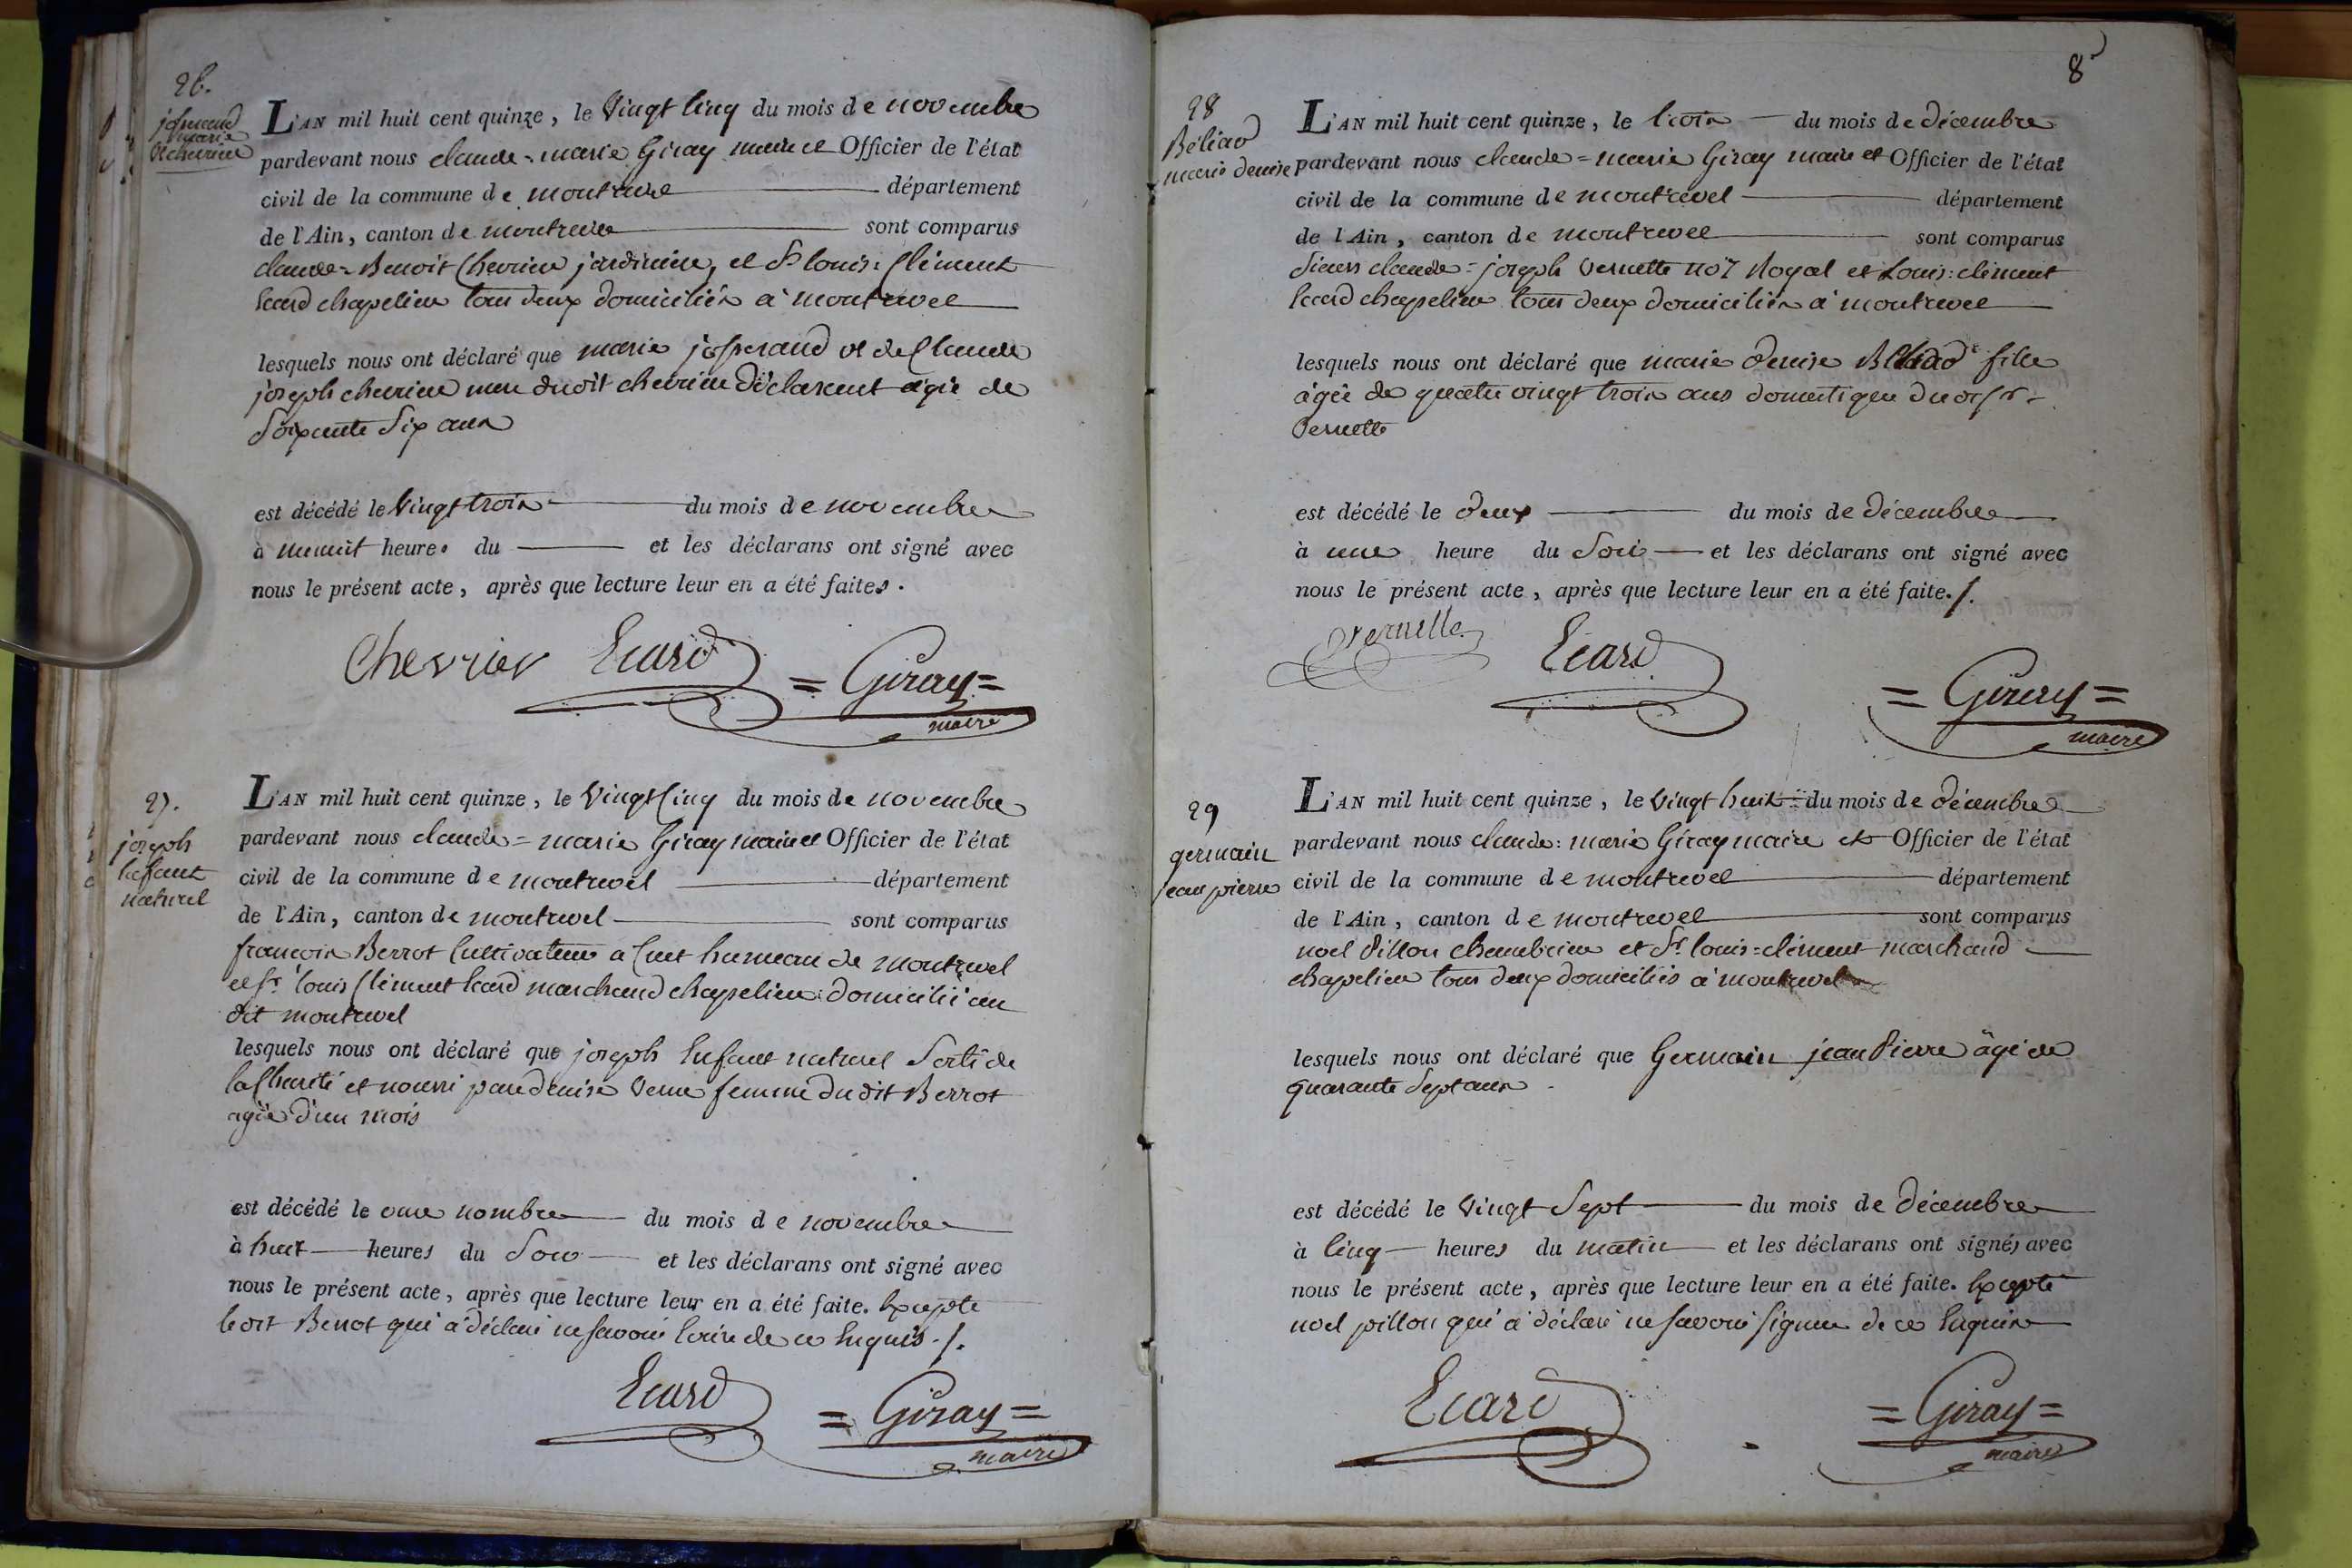 26.
josserand
marie
ve chevrier
L'AN mil huit cent quinze, le Vingt cinq du mois de novembre
pardevant nous claude = marie Giray maire et Officier de l'état
civil de la commune de montrevel département
de l'Ain, canton de montrevel sont comparus
claude = Benoit Chevrier jardinier, et Sr louis: Clément
Ecard chapelier tous deux domiciliés à montrevel
lesquels nous ont déclaré que marie josserand ve de Claude
joseph chevrier mere dudit chevrier déclarent agée de
Soixante Six ans
est décédé le Vingt trois du mois de novembre
à minuit heures du et les déclarans ont signé avec
nous le présent acte, après que lecture leur en a été faites.
Chevrier Ecard = Giray =
maire
27.
joseph
Enfant
naturel
L'AN mil huit cent quinze, le Vingt Cinq du mois de novembre
pardevant nous claude = marie Giray maire et Officier de l'état
civil de la commune de montrevel département
de l'Ain, canton de montrevel sont comparus
francois Berrot Cultivateur a Cuet hameau de montrevel
et Sr louis Clément Ecard marchand chapelier domicilié au
dit montrevel
lesquels nous ont déclaré que joseph Enfant naturel Sorti de
la Charité et nourri par denise veme femme du dit Berrot
agée d'un mois
est décédé le onze nombre du mois de novembre
à huit heures du Soir et les déclarans ont signé avec
nous le présent acte, après que lecture leur en a été faite. Excepté
le dit Berrot qui a déclaré ne savoir Ecrire de ce Enquis ./.
Ecard = Giray =
maire
8
28
Béliad
marie denise
L'AN mil huit cent quinze, le trois du mois de décembre
pardevant nous claude = marie Giray maire et Officier de l'état
civil de la commune de montrevel département
de l'Ain, canton de montrevel sont comparus
Sieurs claude = joseph Vernette nore Royal et Louis: clément
Ecard chapelier tous deux domiciliés à montrevel
lesquels nous ont déclaré que marie denise Béliad fille
âgée de quatre vingt trois ans domestique du dit Sr.
Vernette
est décédé le deux du mois de décembre
à une heure du Soir et les déclarans ont signé avec
nous le présent acte, après que lecture leur en a été faite. /.
Vernette Ecard
= Giray =
maire
29
germain
jean pierre
L'AN mil huit cent quinze, le Vingt huit du mois de décembre
pardevant nous claude: marie Giray maire et Officier de l'état
civil de la commune de montrevel département
de l'Ain, canton de montrevel sont comparus
noel Pillon et Sr louis = clément marchand
chapelier tous deux domiciliés à montrevel
lesquels nous ont déclaré que Germain jean Pierre âgé de
quarante Sept ans
est décédé le Vingt Sept du mois de décembre
à Cinq heures du matin et les déclarans ont signés avec
nous le présent acte, après que lecture leur en a été faite. Excepté
noel pillon qui a déclaré ne savoir signer de ce Enquis
Ecard = Giray =
maire